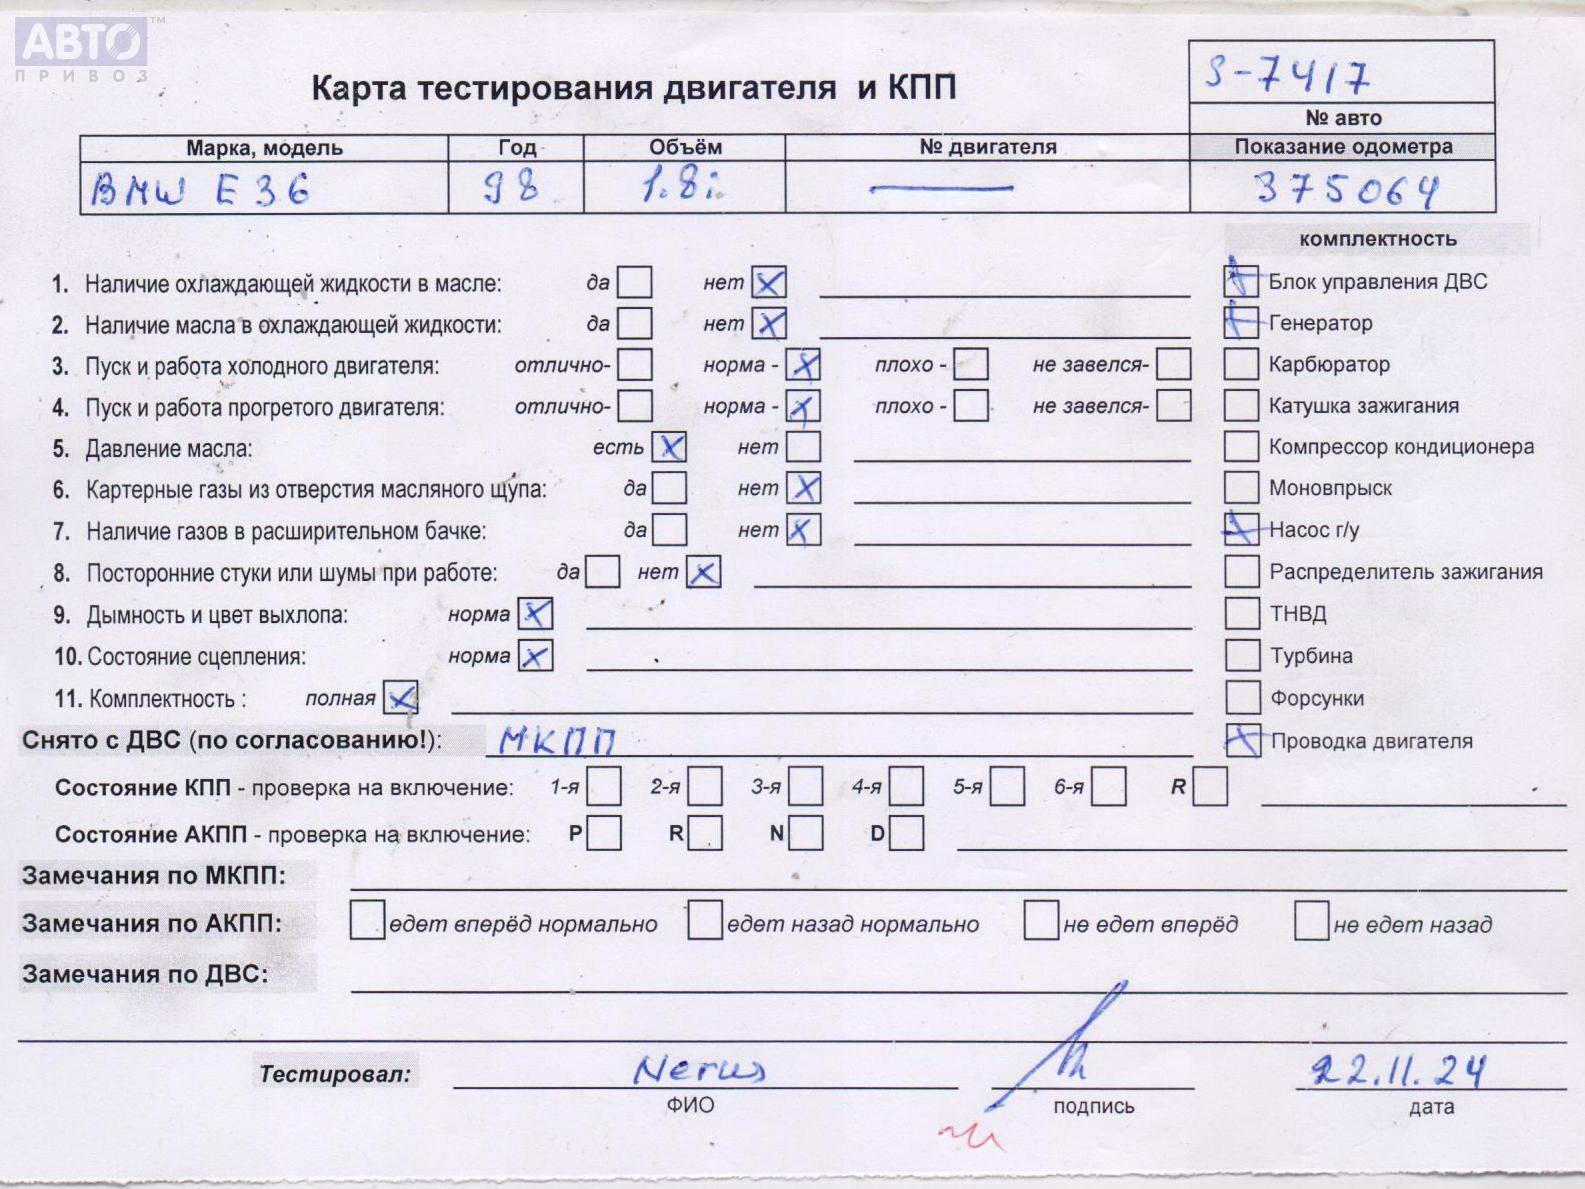 АВТО™
ПРИВОЗ
Карта тестирования двигателя и КПП
S-7417
№ авто
Марка, модель Год Объём № двигателя Показание одометра
BMW E36 98 1.8i — 375064
комплектность
1. Наличие охлаждающей жидкости в масле: да нет Блок управления ДВС
2. Наличие масла в охлаждающей жидкости: да нет Генератор
3. Пуск и работа холодного двигателя: отлично- норма - плохо - не завелся- Карбюратор
4. Пуск и работа прогретого двигателя: отлично- норма - плохо - не завелся- Катушка зажигания
5. Давление масла: есть нет Компрессор кондиционера
6. Картерные газы из отверстия масляного щупа: да нет Моновпрыск
7. Наличие газов в расширительном бачке: да нет Насос г/у
8. Посторонние стуки или шумы при работе: да нет Распределитель зажигания
9. Дымность и цвет выхлопа: норма ТНВД
10. Состояние сцепления: норма Турбина
11. Комплектность : полная Форсунки
Снято с ДВС (по согласованию!): МКПП Проводка двигателя
Состояние КПП - проверка на включение: 1-я 2-я 3-я 4-я 5-я 6-я R
Состояние АКПП - проверка на включение: P R N D
Замечания по МКПП:
Замечания по АКПП: едет вперёд нормально едет назад нормально не едет вперёд не едет назад
Замечания по ДВС:
Тестировал: Nerus 22.11.24
ФИО подпись дата